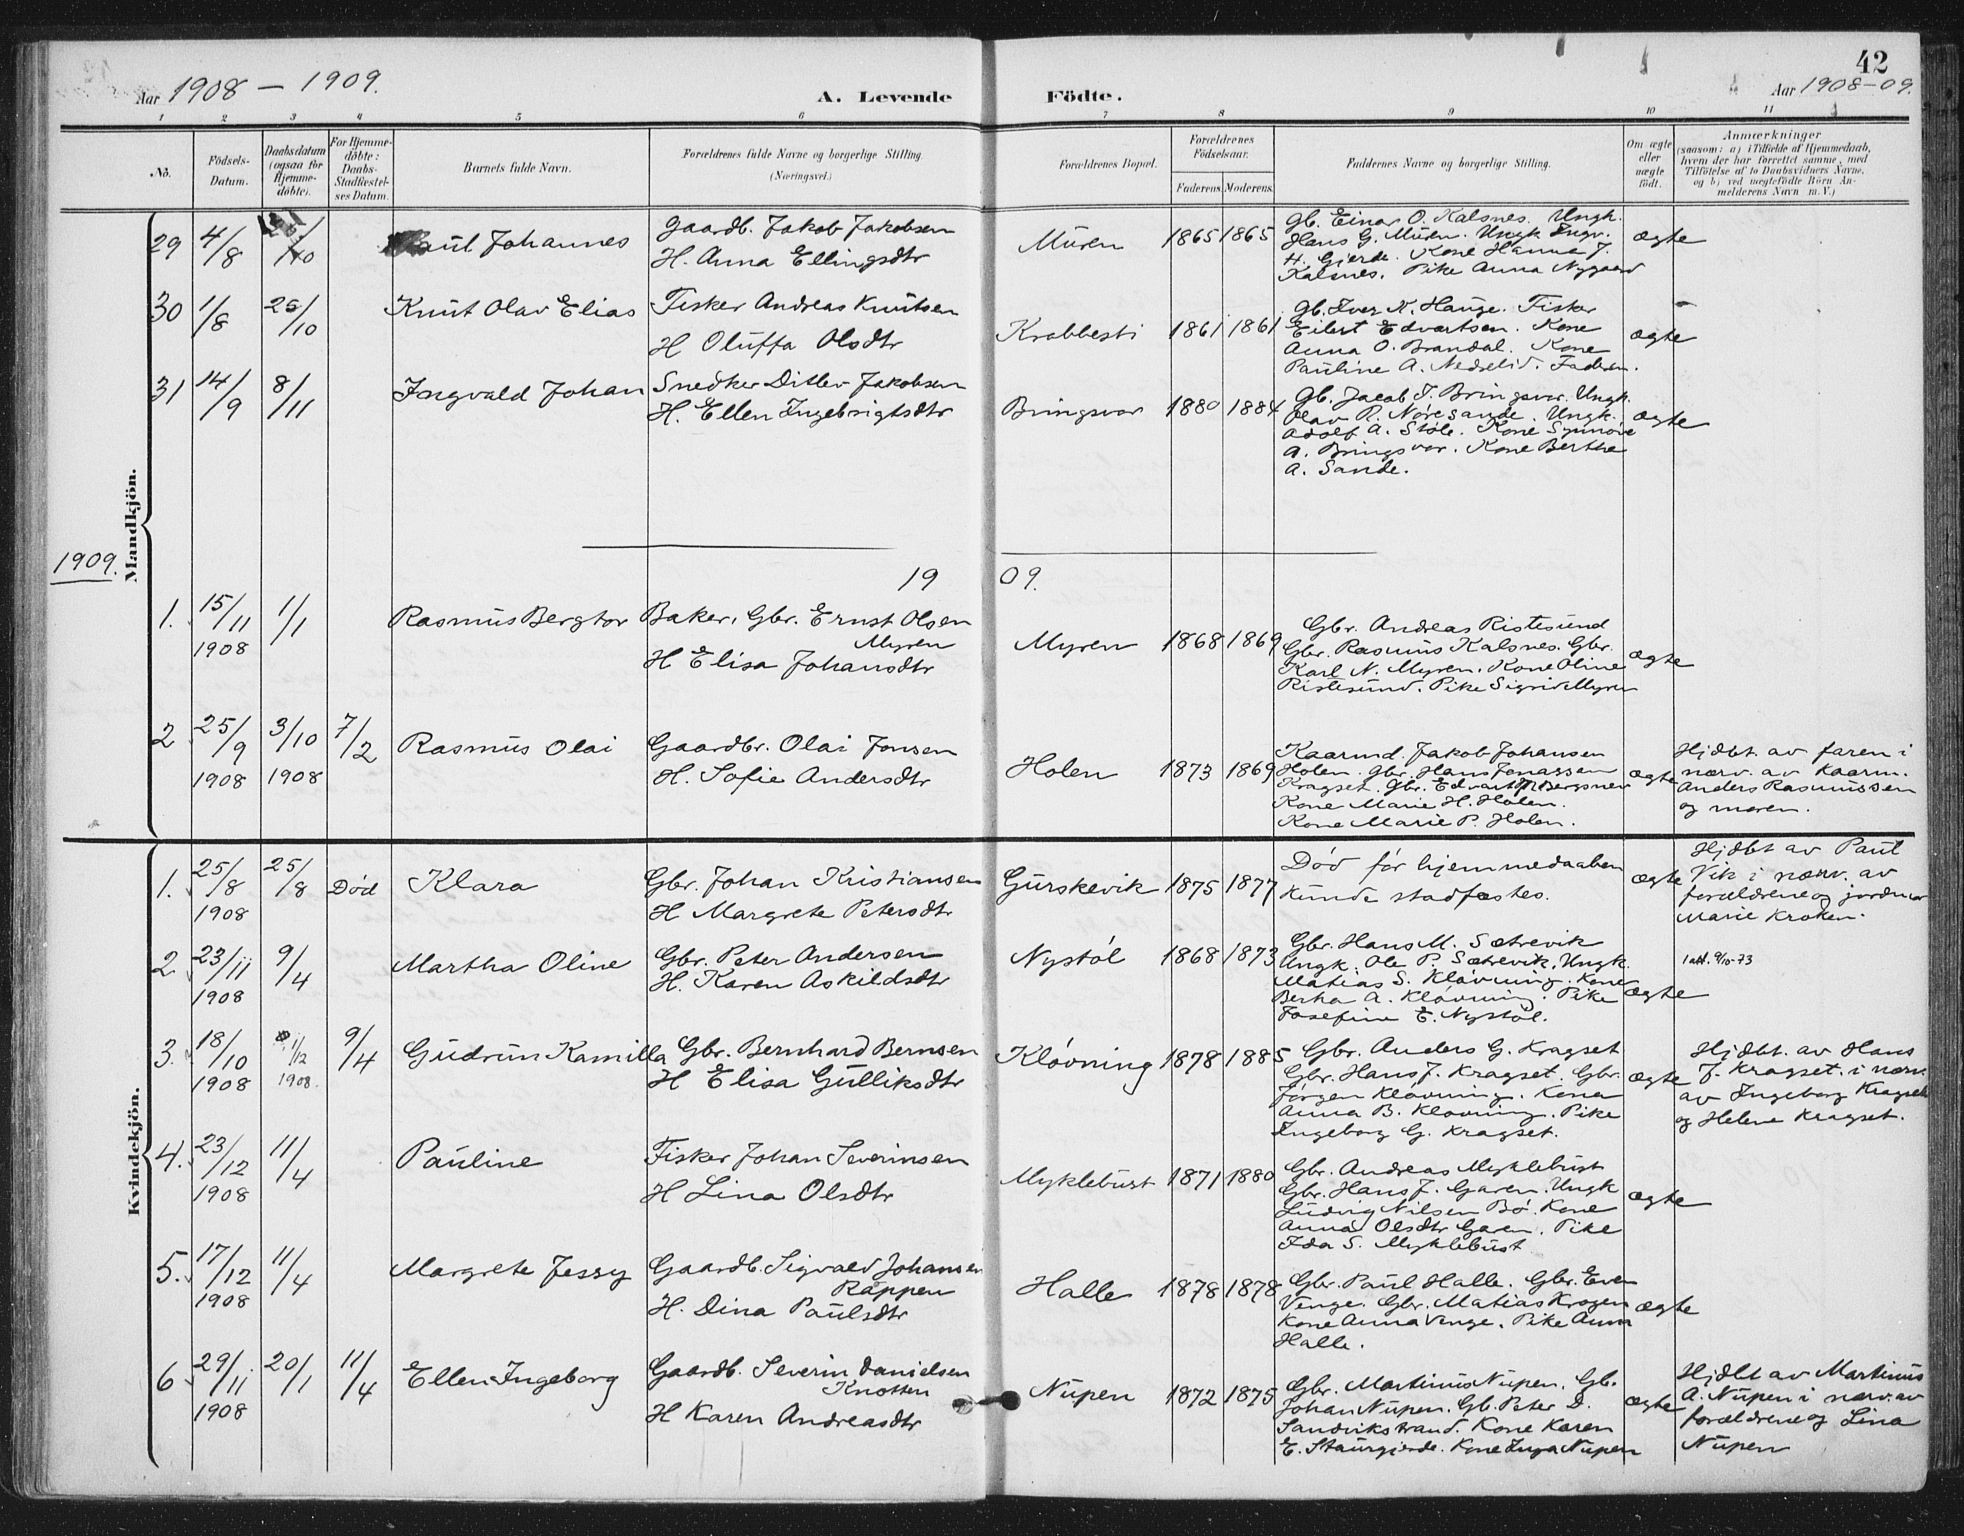 42
Aar 1908 – 1909.
A. Levende Födte.
Aar 1908–09.
1 2 3 4 5 6 7 8 9 10 11
No.
Födsels-Datum.
Daabsdatum (ogsaa for Hjemmedöbte).
For Hjemmedöbte: Daabs-Stadfæstelses Datum.
Barnets fulde Navn.
Forældrenes fulde Navne og borgerlige Stilling. (Næringsvei.)
Forældrenes Bopæl.
Forældrenes Födselsaar.
Faderens. Moderens.
Faddernes Navne og borgerlige Stilling.
Om ægte eller uægte födt.
Anmærkninger
(saasom: a) i Tilfælde af Hjemmedaab,
hvem der har forrettet samme, med
Tilföielse af to Daabsvidners Navne,
og b) ved uægtefödte Börn An-
melderens Navn m. V.)
Mandkjön.
29 4/8 /10 Paul Johannes
Gaardb. Jakob Jakobsen
H. Anna Ellingsdtr
Muren 1865 1865
Gb. Einar O. Kalsnes. Ungk.
Hans G. Muren. Ungk. Ingv.
H. Gjerde. Kone Hanna J.
Kalsnes. Pike Anna Nygaard
ægte
30 1/8 25/10 Knut Olav Elias
Fisker Andreas Knutsen
H Oluffa Olsdtr
Krabbesti 1861 1861
Gb. Iver K. Hauge. Fisker
Eilert Edvartsen. Kone
Anna O. Brandal. Kone
Pauline A. Nedrelid. Faderen.
ægte –
31 14/9 8/11 Ingvald Johan
Snedker Ditlev Jakobsen
H. Ellen Ingebrigtsdtr
Bringsvor 1880 1884
Gb. Jacob J. Bringsvor. Ungk.
Olav R. Nöre Sande. Ungk.
Adolf A. Støle. Kone Synnöve
A. Bringsvor. Kone Berthe
A. Sande.
ægte
1909.
1909.
1. 15/11 1908 1/1 Rasmus Bergtor
Baker, Gbr. Ernst Olsen
Myren
H Elisa Johansdtr
Myren 1868 1869
Gbr. Andreas Ristesund
Gbr. Rasmus Kalsnes. Gbr.
Karl N. Myren. Kone Oline
Ristesund. Pike Sigrid Myren
ægte
2 25/9 1908 3/10 1908 7/2 Rasmus Olai
Gaardbr. Olai Jonsen
H. Sofie Andersdtr
Holen 1873 1869
Kaarmd. Jakob Johansen
Holen. Gbr. Hans Jonassen
Kragset. Gbr. Edvart R. Bergsnev
Kone Marie H. Holen.
Kone Marie P. Holen.
ægte
Hjdbt. av faren i
nærv. av Kaarm.
Anders Rasmussen
og moren.
Kvindekjön.
1. 25/8 1908 25/8 Död Klara
Gbr. Johan Kristiansen
H Margrete Petersdtr
Gurskevik 1875 1877
Död för hjemmedaaben
kunde stadfæstes.
ægte
Hjdbt av Paul
Vik i nærv. av
forældrene og jordmor
Marie Kroken.
2 23/11 1908 9/4 Martha Oline
Gbr. Peter Andersen
H. Karen Askildsdtr
Nystöl 1868 1873
Gbr. Hans M. Sætrevik
Ungk. Ole P. Sætrevik. Ungk.
Matias S. Klövning. Kone
Bertha A. Klövning. Pike
Josefine E. Nystöl.
ægte
1 att. 9/10-73
3. 18/10 1908 1/12 1908. 9/4 Gudrun Kamilla
Gbr. Bernhard Bernsen
H Elisa Gulliksdtr
Klövning 1878 1885
Gbr. Anders G. Kragset
Gbr. Hans J. Kragset. Gbr.
Jörgen Klövning. Kone
Anna B. Klövning. Pike
Ingeborg G. Kragset.
ægte
Hjdbt. av Hans
J. Kragset. i nærv.
av Ingeborg Kragset
og Helene Kragset.
4. 23/12 1908 11/4 Pauline
Fisker Johan Severinsen
H Lina Olsdtr
Myklebust 1871 1880
Gbr. Andreas Myklebust
Gbr. Hans J. Garen. Ungk
Ludvig Nilsen Bö. Kone
Anna Olsdtr Garen. Pike
Ida S. Myklebust
ægte
5. 17/12 1908 11/4 Margrete Jessy
Gaardb. Sigvald Johansen
Rappen
H. Dina Paulsdtr
Halle 1878 1878
Gbr. Paul Halle. Gbr. Even
Venge. Gbr. Matias Krogen
Kone Anna Venge. Pike Anna
Halle.
ægte
6 29/11 1908 20/1 11/4 Ellen Ingeborg
Gaardb. Severin Danielsen
Knotten
H Karen Andreasdtr
Nupen 1872 1875
Gbr. Martinus Nupen. Gb.
Johan Nupen. Gb. Peter D.
Sandvikstrand. Kone Karen
E. Staurgjerde. Kone Inga Nupen
ægte
Hjdbt av Martinus
A. Nupen i nærv. av
forældrene og Lina
Nupen